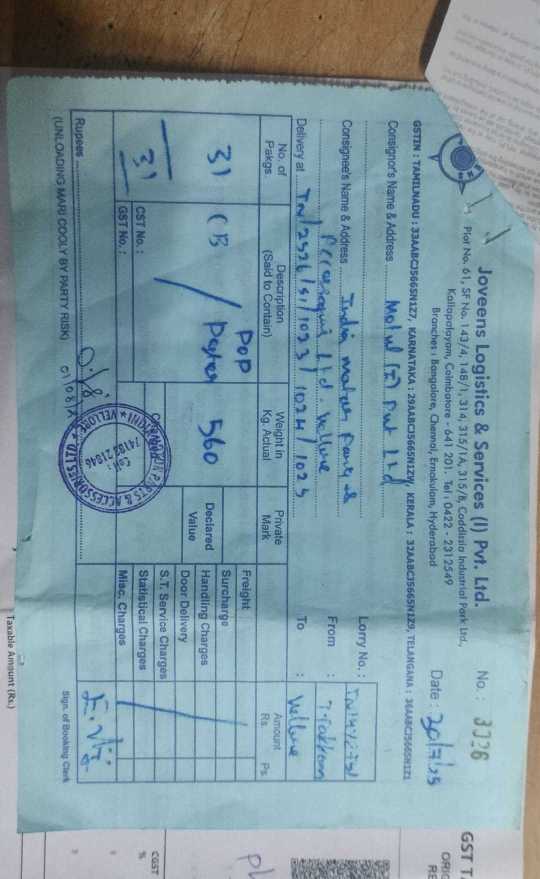 Joveens Logistics & Services (I) Pvt. Ltd.
No. : 3336
Plot No. 61, SF No. 143/4, 148/1, 314, 315/1A, 315/B, Coddissia Industrial Park Ltd.,
Kallapalayam, Coimbatore - 641 201. Tel : 0422 - 2312549
Branches : Bangalore, Chennai, Ernakulam, Hyderabad
Date : 30/7/25
GSTIN : TAMILNADU : 33AABCJ5665N1Z7, KARNATAKA : 29AABCJ5665N1ZW, KERALA : 32AABCJ5665N1Z9, TELANGANA : 36AABCJ5665N1Z1
Consignor's Name & Address
Pvt Ltd
Lorry No. :
Consignee's Name & Address India motor Parts &
From :
Ltd. Vellore
Delivery at TN/2526/51/1023/1024/1025
To : Vellore
No. of Pakgs.
Description (Said to Contain)
Weight in Kg. Actual
Private Mark
Amount
Rs. Ps.
31 CB / POP Paper 560
Declared Value
Freight
Surcharge
Handling Charges
Door Delivery
S.T. Service Charges
Statistical Charges
Misc. Charges
31
CST No. :
GST No. :
Rupees
(UNLOADING MARI COOLY BY PARTY RISK)
Sign. of Booking Clerk
PARTS & ACCESSORIES LTD. ★ VELLORE
Cell :
74183 21846
GST T
ORIG
RE
Taxable Amount (Rs.)
CGST
%